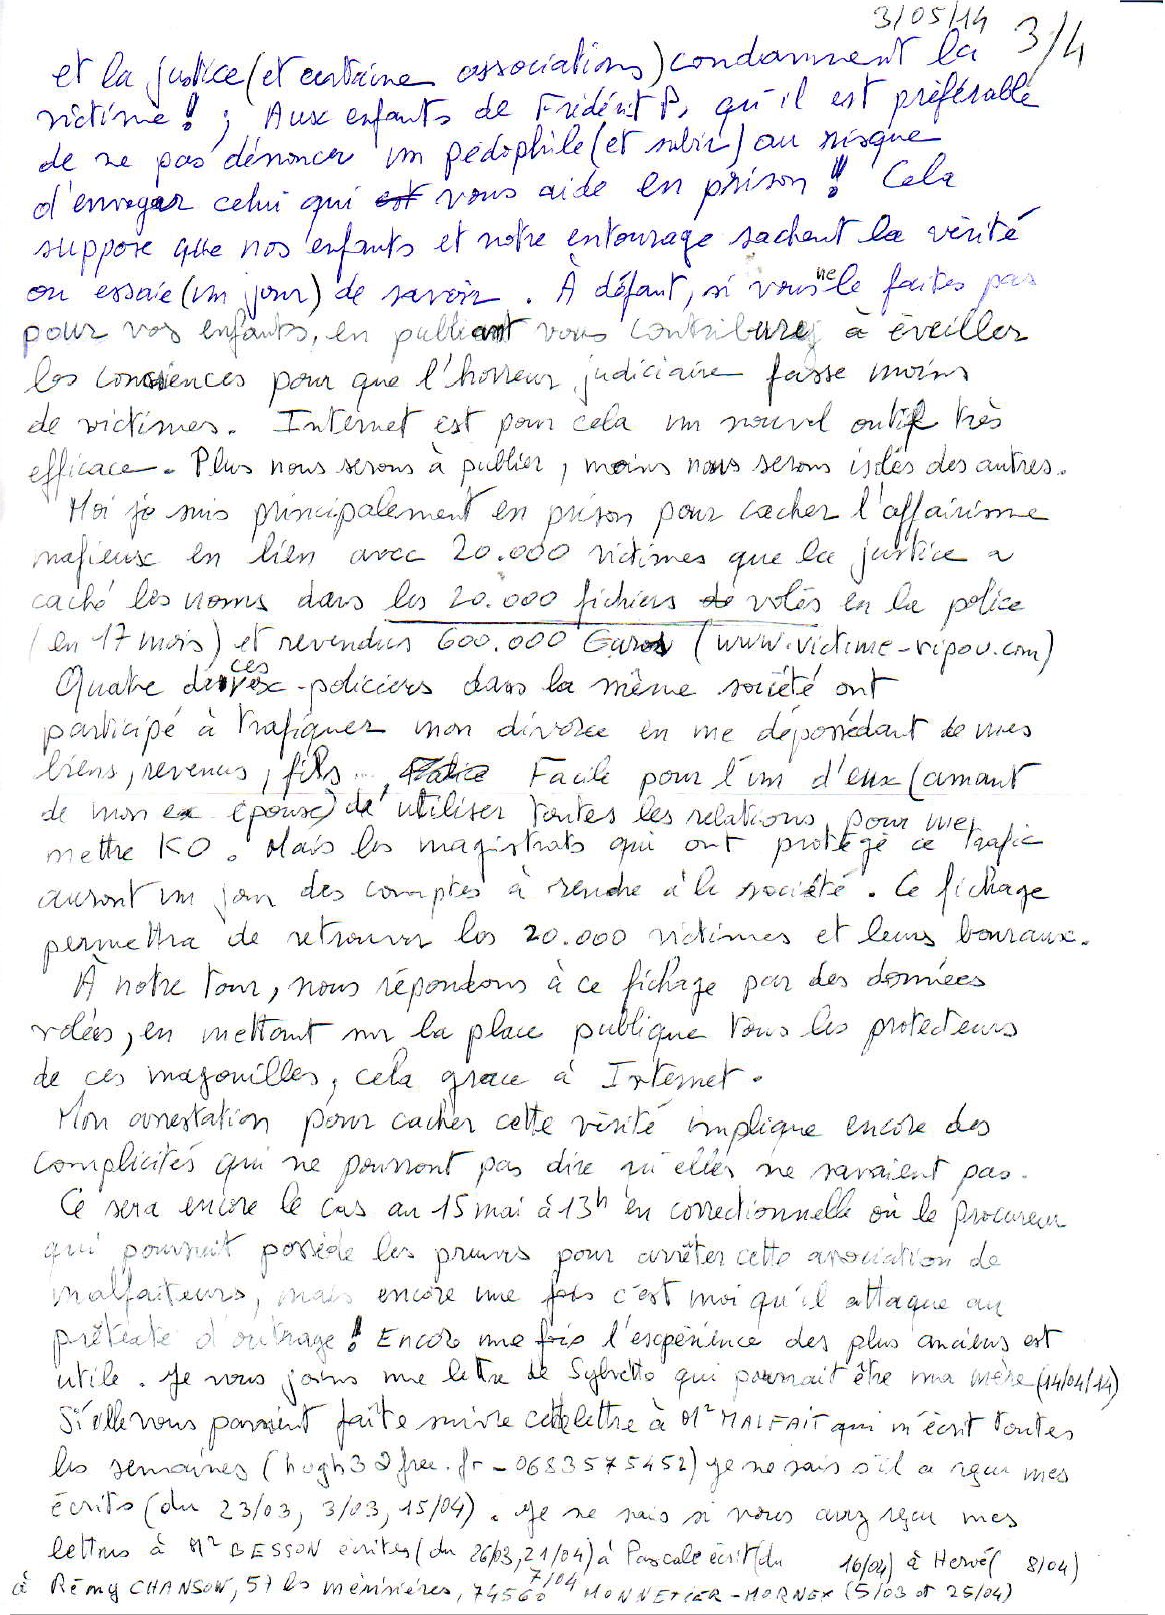 3/05/14 3/4
et la justice (et certaine associations) condamnent la
victime ! ; Aux enfants de Frédéric P, qu'il est préférable
de ne pas dénoncer un pédophile (et subir) au risque
d'envoyer celui qui est vous aide en prison ! Cela
suppose que nos enfants et notre entourage sachent la vérité
ou essaie (un jour) de savoir . À défaut, si vous ne le faites pas
pour vos enfants, en publiant vous contribuez à éveiller
les consciences pour que l'horreur judiciaire fasse moins
de victimes. Internet est pour cela un nouvel outil très
efficace. Plus nous serons à publier, moins nous serons isolés des autres.
Moi je suis principalement en prison pour cacher l'affairisme
mafieux en lien avec 20.000 victimes que la justice a
caché les noms dans les 20.000 fichiers de volés en la police
(en 17 mois) et revendus 600.000 Euros (www.victime-ripou.com)
Quatre de ces ex-policiers dans la même société ont
participé à trafiquer mon divorce en me dépossédant de mes
biens, revenus, fils ..., Facile pour l'un d'eux (amant
de mon ex épouse) de utiliser toutes les relations pour me
mettre KO. Mais les magistrats qui ont protégé ce trafic
auront un jour des comptes à rendre à la société. Ce fichage
permettra de retrouver les 20.000 victimes et leurs bouraux.
À notre tour, nous répondons à ce fichage par des données
volées, en mettant sur la place publique tous les protecteurs
de ces magouilles, cela grace à Internet.
Mon arrestation pour cacher cette vérité implique encore des
complicités qui ne pourront pas dire qu'elles ne savaient pas.
Ce sera encore le cas au 15 mai à 13h en correctionnelle où le procureur
qui poursuit possède les preuves pour arrêter cette association de
malfaiteurs, mais encore une fois c'est moi qu'il attaque au
prétexte d'outrage ! Encore une fois l'expérience des plus anciens est
utile. Je vous joins une lettre de Sylvette qui pourrait être ma mère (14/04/14)
Si elle vous parvient faite suivre cette lettre à Mr MALFAIT qui m'écrit toutes
les semaines (hugh3@free.fr - 0683575452) je ne sais s'il a reçu mes
écrits (du 23/03, 3/03, 15/04). Je ne sais si vous avez reçu mes
lettres à Mr BESSON écrites (du 26/03, 21/04) à Pascale écrit (du 16/04) à Hervé ( 8/04)
7/04
à Rémy CHANSON, 57 les mésinières, 74560 MONNETIER-MORNEX (5/03 et 25/04)